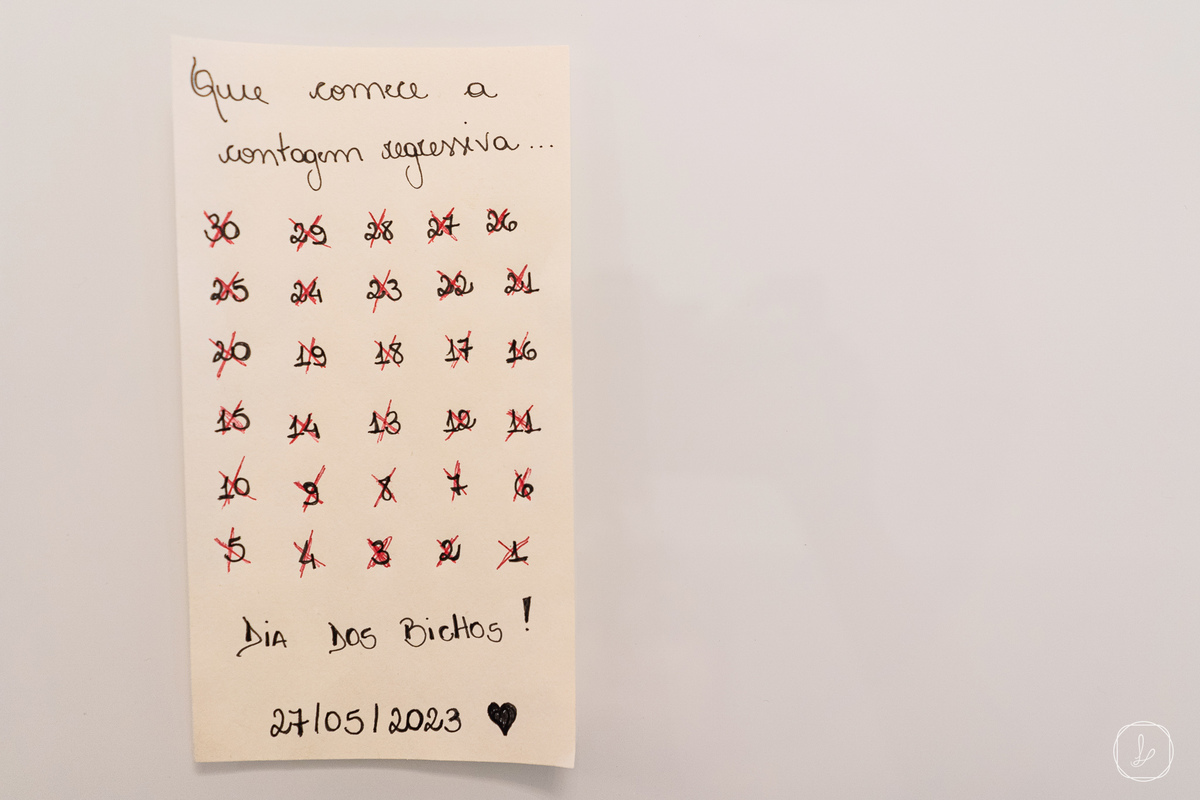 Que comece a
contagem regressiva...
30 29 28 27 26
25 24 23 22 21
20 19 18 17 16
15 14 13 12 11
10 9 8 7 6
5 4 3 2 1
DiA DOS BicHOS!
27/05/2023 ♥